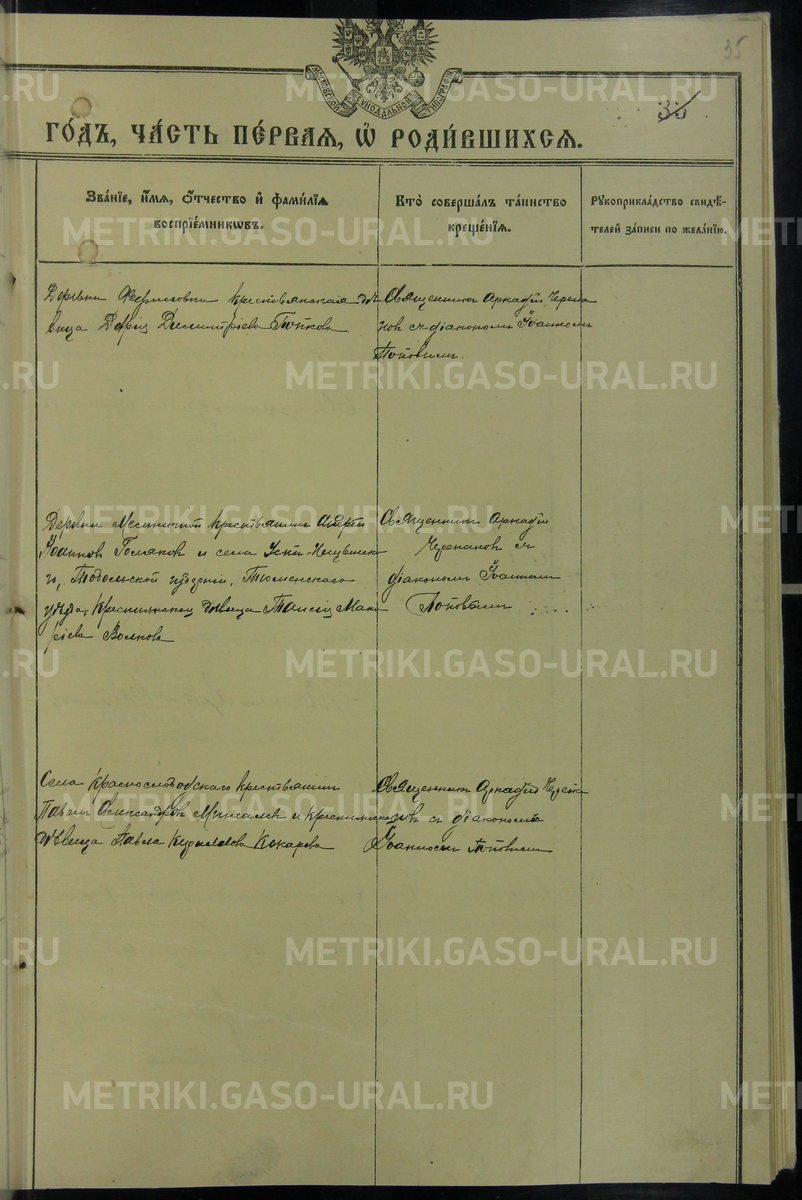 35
МОСКОВСКОЙ СѴНОДАЛЬНОЙ ТИПОГРАФІИ
35
ГО́ДЪ, ЧА́СТЬ ПЕ́РВАЯ, Ѽ РОДИ́ВШИХСЯ.
Зва́нїе, и́мя, о́тчество и҆ фами́лїя
воспрїе́мникѡвъ.
Кто̀ соверша́лъ та́инство
креще́нїя.
Рꙋкоприкла́дство свидѣ́-
телей за́писи по жела́нїю.
Деревни крестьянская дѣ
вица Дарія Димитріева
Священникъ Аркадій Черепа
новъ съ діакономъ Іоанномъ
Поповымъ.
Деревни крестьянинъ Андрей
Іоанновъ и села Усть-
Тобольской губерніи, Тюменскаго
уѣзда, крестьянская дѣвица Таисія Мака
ріева Волкова
Священникъ Аркадій
Черепановъ съ
діакономъ Іоанномъ
Поповымъ
Села Краснослободскаго крестьянинъ
Павелъ Александровъ и крестьянская
дѣвица Павла Кокарева
Священникъ Аркадій Черепа
новъ съ діакономъ
Іоанномъ Поповымъ
METRIKI.GASO-URAL.RU